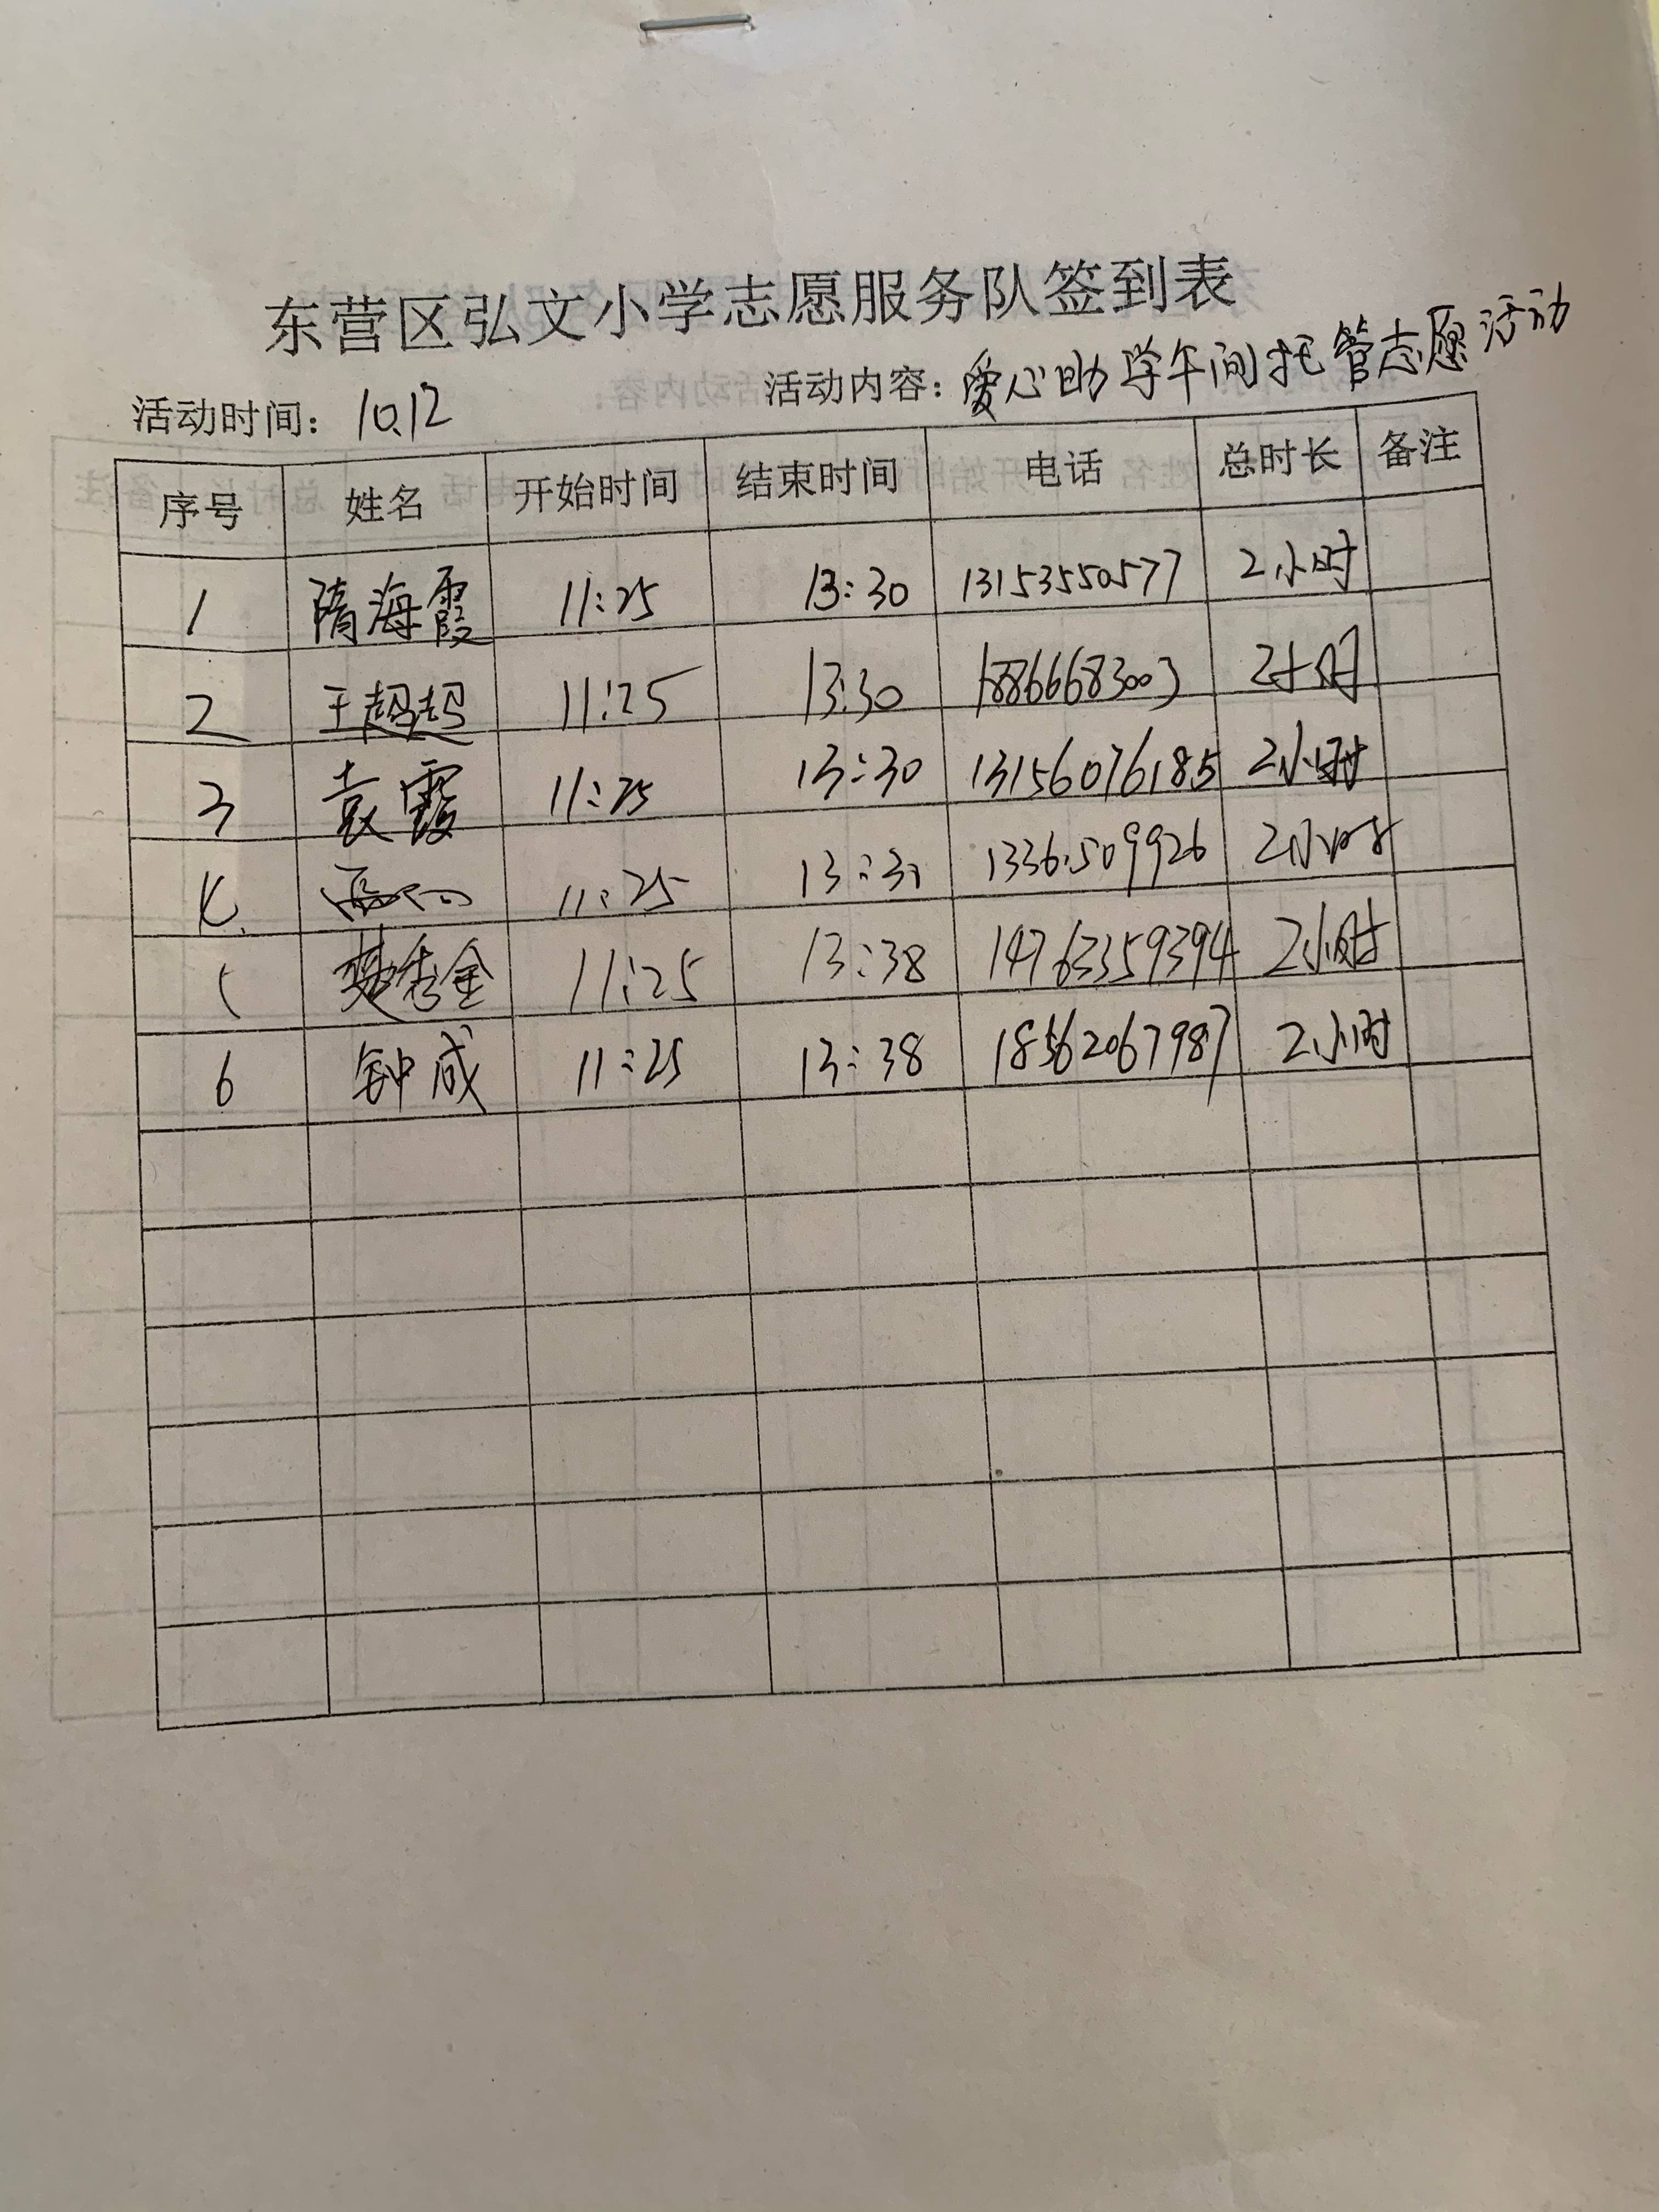 东营区弘文小学志愿服务队签到表
活动时间：10.12 活动内容：爱心助学午间托管志愿活动
序号 姓名 开始时间 结束时间 电话 总时长 备注
1 隋海霞 11:25 13:30 13153550577 2小时
2 王超超 11:25 13:30 18866683003 2小时
3 袁霞 11:25 13:30 13156076185 2小时
11:25 13:30 2小时
5 楚秀金 11:25 13:38 14763359394 2小时
6 钟成 11:25 13:38 18562067987 2小时